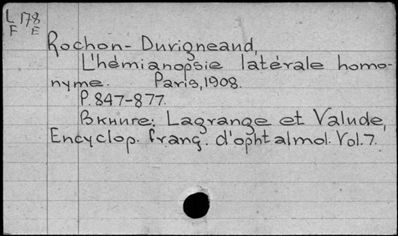 L 178
F E
Rochon-Duvigneaud,
L'hémianopsie latérale homo-
nyme. Paris, 1908.
P. 847-877.
Вкниге: Lagrange et Valude,
Encyclop. franç. d'ophtalmol. Vol. 7.